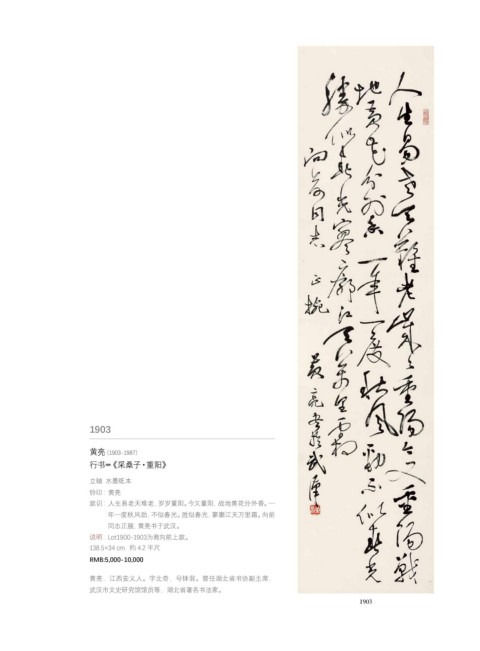 人生易老天难老岁岁重阳今又重阳战
地黄花分外香一年一度秋风劲不似春光
胜似春光寥廓江天万里霜
向前同志正腕
黄亮书于武汉
1903
黄亮 (1903-1987)
行书《采桑子·重阳》
立轴 水墨纸本
钤印：黄亮
款识：人生易老天难老，岁岁重阳。今又重阳，战地黄花分外香。一
年一度秋风劲，不似春光。胜似春光，寥廓江天万里霜。向前
同志正腕，黄亮书于武汉。
说明：Lot1900-1903为肖向前上款。
138.5×34 cm. 约 4.2 平尺
RMB:5,000-10,000
黄亮，江西安义人。字北奇，号钵翁。曾任湖北省书协副主席，
武汉市文史研究馆馆员等，湖北省著名书法家。
1903